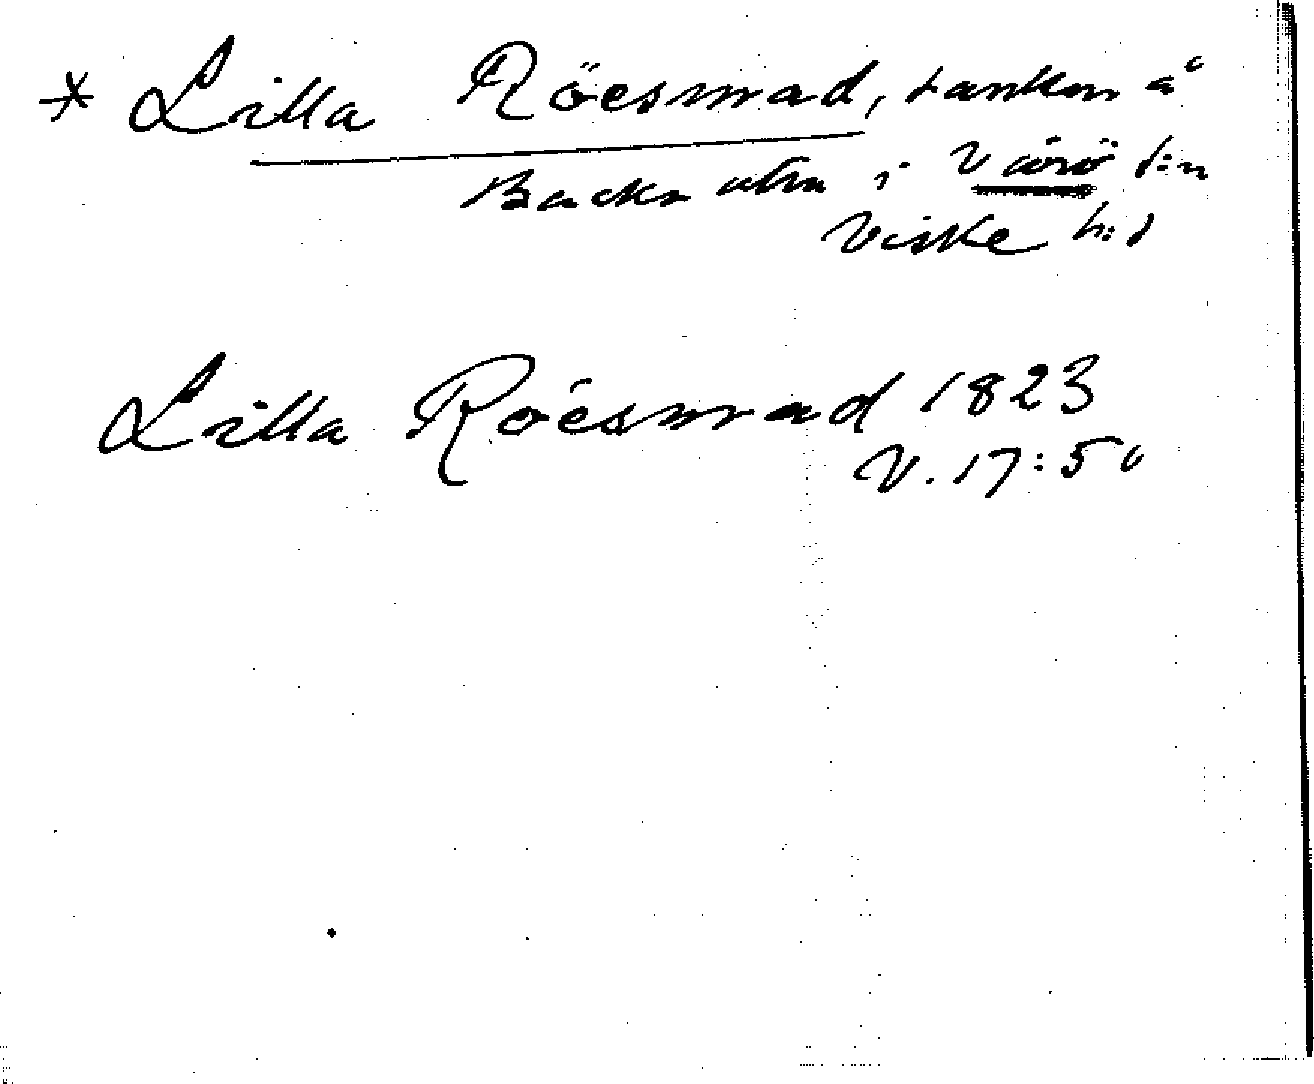 * Lilla Röesmad, tankm å
Backa utm i Värö s:n
Viske h:d
Lilla Röesmad 1823
V. 17:50